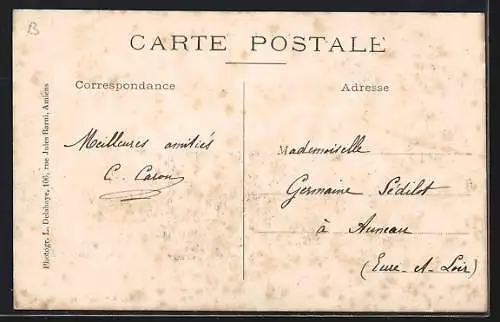 B
CARTE POSTALE
Correspondance
Meilleures amitiés
C. Caron
Adresse
Mademoiselle
Germaine Sédilot
à Auneau
(Eure-et-Loir)
Photogr. L. Delahaye, 106, rue Jules Barni, Amiens